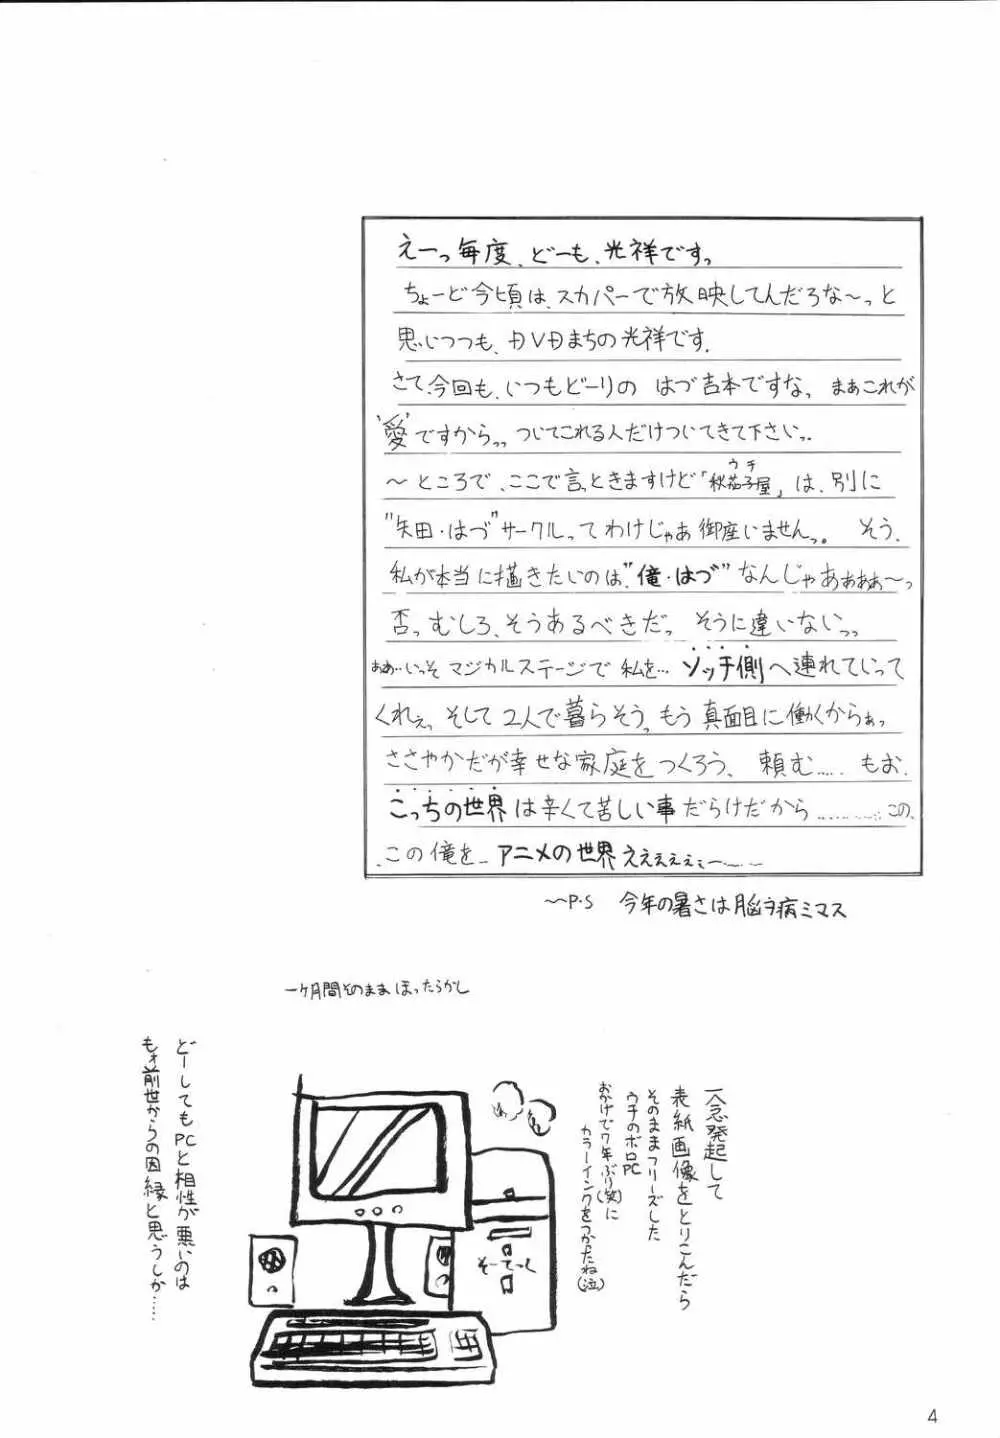 えーっ毎度、どーも、光祥ですっ
ちょーど今頃は、スカパーで放映してんだろな〜っと
思いつつも、DVDまちの光祥です.
さて、今回も、いつもどーりの はづ吉本ですなっ まあこれが
"愛"ですからっっ ついてこれる人だけついてきて下さいっ.
〜ところで、ここで言っときますけど「秋茄子屋」は、別に
ウチ
"矢田・はづ"サークルってわけじゃあ御座いませんっ。 そう、
私が本当に描きたいのは"俺・はづ"なんじゃあぁぁぁ〜っ
否っむしろ、そうあるべきだっ そうに違いないっっ
ああ…いっそ マジカルステージで 私を… ソッチ側へ連れていって
くれぇ、そして2人で暮らそうっもう真面目に働くからぁっ
ささやかだが幸せな家庭をつくろう、 頼む…… もお、
こっちの世界は辛くて苦しい事だらけだから………… この、
この俺を… アニメの世界えぇぇぇぇー……
〜〜P.S 今年の暑さは脳ヲ病ミマス
一ヶ月間そのままほったらかし
一念発起して
表紙画像をとりこんだら
そのままフリーズした
ウチのボロPC
おかげで7年ぶり(笑)に
カラーインクをつかったね(泣)
そーてっく
どーしてもPCと相性が悪いのは
もォ前世からの因縁と思うしか……
4